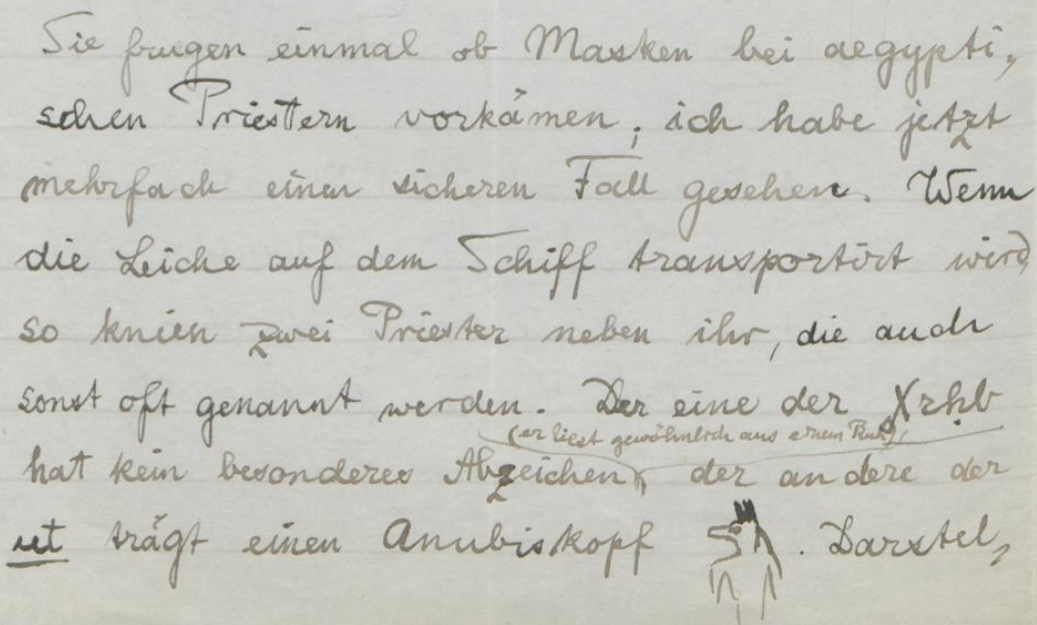 Sie frugen einmal ob Masken bei aegypti,
schen Priestern vorkämen, ich habe jetzt
mehrfach einen sicheren Fall gesehen. Wenn
die Leiche auf dem Schiff transportirt wird,
so knien zwei Priester neben ihr, die auch
sonst oft genannt werden. Der eine der Xrḥb
(er liest gewöhnlich aus einem
hat kein besonderes Abzeichen, der andere der
ut trägt einen Anubiskopf . Darstel,